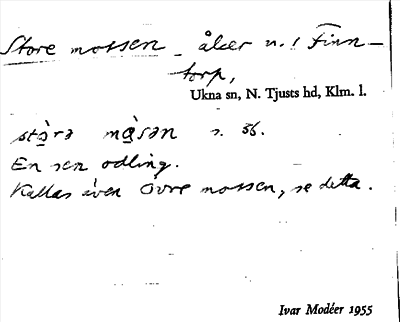 Store mossen åker n. i Finn-
torp,
Ukna sn, N. Tjusts hd, Klm. l.
stò̠rə mạ̀sən s. 56.
En sen odling.
Kallas även Övre mossen, se detta.
Ivar Modéer 1955